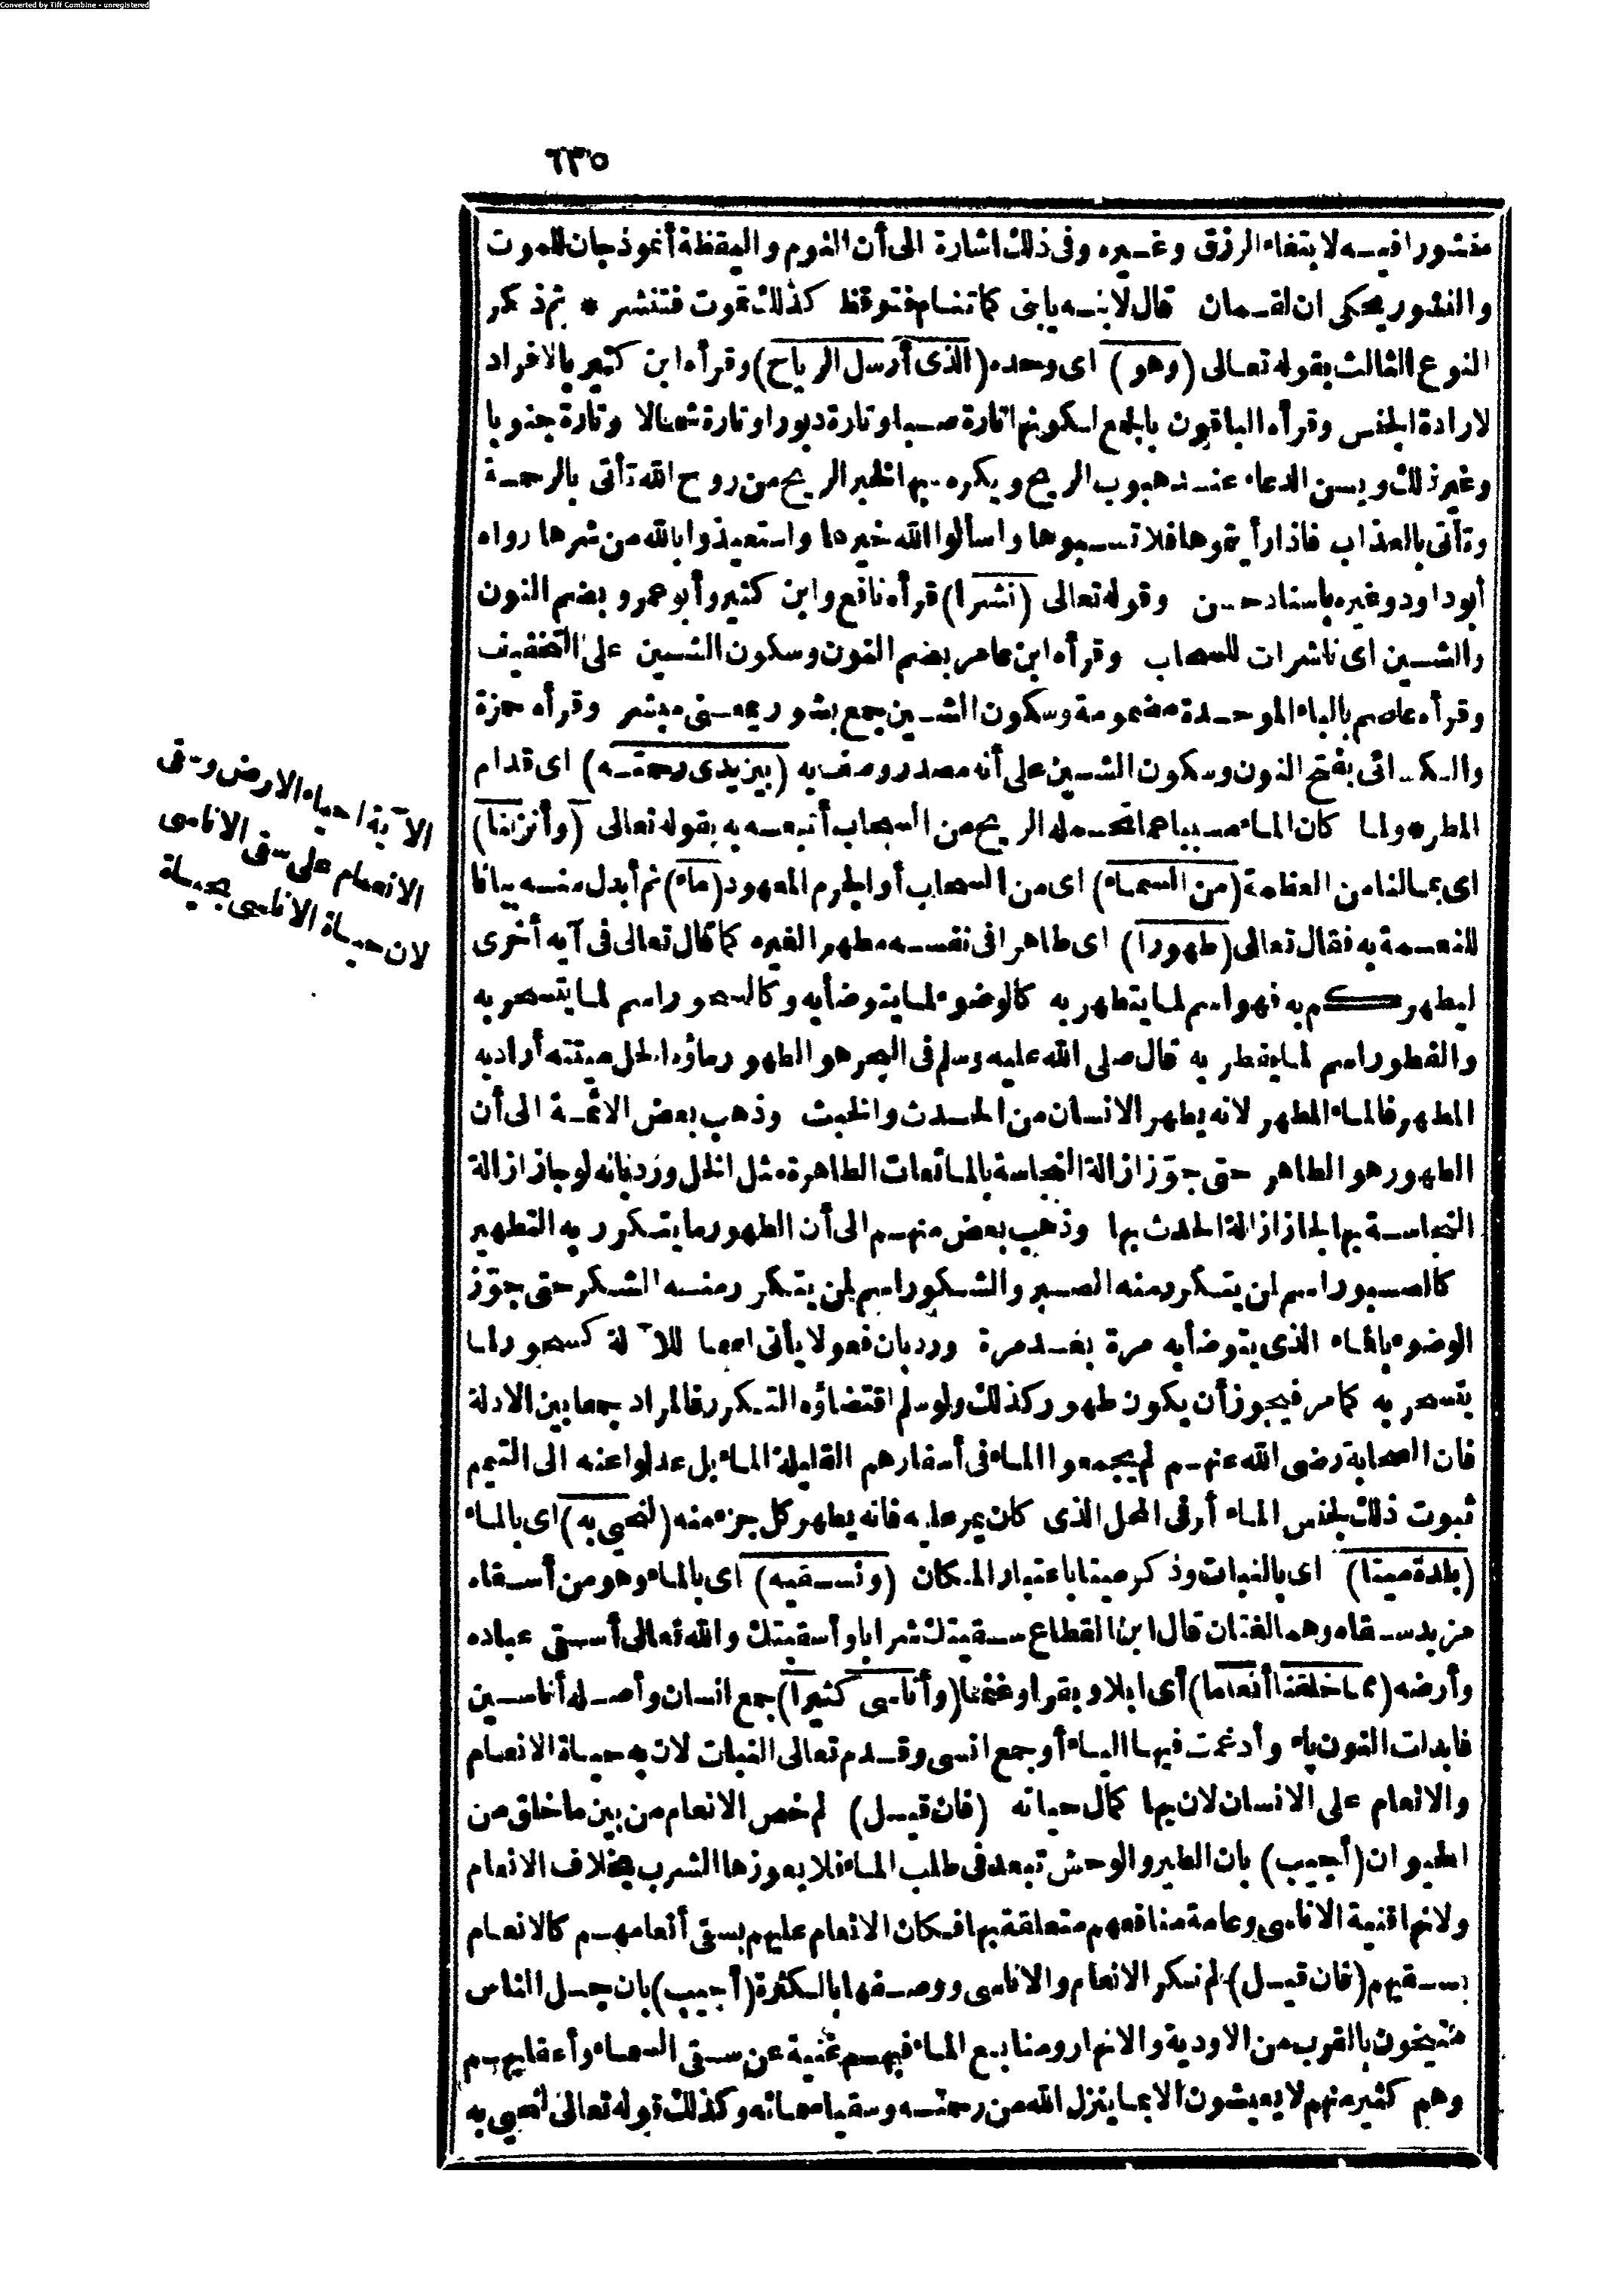 Converted by Tiff Combine - unregistered
٦٣٥
منشورا فيه لابتغاء الرزق وغيره وفى ذلك اشارة الى أن النوم واليقظة أنموذجان للموت
والنشور يحكى ان لقمان قال لابنه يابنى كما تنام فتوقظ كذلك تموت فتنشر * ثم ذكر
النوع الثالث بقوله تعالى (وهو) اى وحده (الذى أرسل الرياح) وقرأه ابن كثير بالافراد
لارادة الجنس وقرأه الباقون بالجمع لكونها تارة صبا وتارة دبورا وتارة شمالا وتارة جنوبا
وغير ذلك ويسن الدعاء عند هبوب الريح ويكره سبها لخبر الريح من روح الله تأتى بالرحمة
وتأتى بالعذاب فاذا رأيتموها فلا تسبوها واسألوا الله خيرها واستعيذوا بالله من شرها رواه
أبو داود وغيره باسناد حسن وقوله تعالى (نشرا) قرأه نافع وابن كثير وأبو عمرو بضم النون
والشين اى ناشرات للسحاب وقرأه ابن عامر بضم النون وسكون الشين على التخفيف
وقرأه عاصم بالباء الموحدة مضمومة وسكون الشين جمع بشور بمعنى مبشر وقرأه حمزة
والكسائى بفتح النون وسكون الشين على أنه مصدر وصف به (بين يدى رحمته) اى قدام
المطر ولما كان الماء مسببا عما تحمله الريح من السحاب أتبعه به بقوله تعالى (وأنزلنا)
اى بما لنا من العظمة (من السماء) اى من السحاب أو الجرم المعهود (ماء) ثم أبدل منه بيانا
للنعمة به فقال تعالى (طهورا) اى طاهرا فى نفسه مطهرا لغيره كما قال تعالى فى آيه أخرى
ليطهركم به فهو اسم لما يتطهر به كالوضوء لما يتوضأ به وكالسحور اسم لما يتسحر به
والفطور اسم لما يفطر به قال صلى الله عليه وسلم فى البحر هو الطهور ماؤه الحل ميتته أراد به
المطهر فالماء المطهر لانه يطهر الانسان من الحدث والخبث وذهب بعض الائمة الى أن
الطهور هو الطاهر حتى جوّز ازالة النجاسة بالمائعات الطاهرة مثل الخل ورد بانه لو جاز ازالة
النجاسة بها لجاز ازالة الحدث بها وذهب بعض منهم الى أن الطهور ما يتكرر به التطهير
كالصبور اسم لمن يتكرر منه الصبر والشكور اسم لمن يتكرر منه الشكر حتى جوّز
الوضوء بالماء الذى يتوضأ به مرة بعد مرة ورد بان فعولا يأتى اسما للآلة كسحور لما
يتسحر به كما مر فيجوز أن يكون طهور كذلك ولو سلم اقتضاؤه التكرر فالمراد جمعا بين الادلة
فان الصحابة رضى الله عنهم لم يجمعوا الماء فى أسفارهم القليلة الماء بل عدلوا عنه الى التيمم
ثبوت ذلك لجنس الماء أو فى المحل الذى كان يمر عليه فانه يطهر كل جزء منه (لنحيى به) اى بالماء
(بلدة ميتا) اى بالنبات وذكر ميتا باعتبار المكان (ونسقيه) اى بالماء وهو من أسقاه
مزيد سقاه وهما لغتان قال ابن القطاع سقيتك شرابا وأسقيتك والله تعالى أسقى عباده
وأرضه (مما خلقنا أنعاما) أى ابلا وبقرا وغنما (وأناسى كثيرا) جمع انسان وأصله أناسين
فابدلت النون ياء وأدغمت فيها الياء أو جمع انسى وقدم تعالى النبات لان به حياة الانعام
والانعام على الانسان لان بها كمال حياته (فان قيل) لم خص الانعام من بين ما خلق من
الحيوان (أجيب) بان الطير والوحش تبعد فى طلب الماء فلا يعوزها الشرب بخلاف الانعام
ولانها قنية الاناسى وعامة منافعهم متعلقة بها فكان الانعام عليهم بسقى أنعامهم كالانعام
بسقيهم (فان قيل) لم نكر الانعام والاناسى ووصفها بالكثرة (أجيب) بان جل الناس
منيخون بالقرب من الاودية والانهار ومنابع الماء فبهم غنية عن سقى السماء وأعقابهم
وهم كثير منهم لا يعيشون الا بما ينزل الله من رحمته وسقيا سمائه وكذلك قوله تعالى لنحيى به
الآية احياء الارض وسقى
الانعام على سقى الاناسى
لان حياة الاناسى بحياة